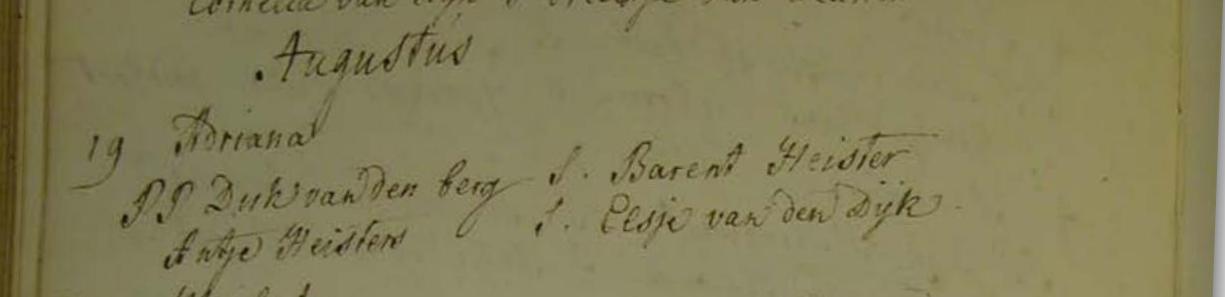 Cornelia van
Augustus
19 Adriana
PP Dirk van den berg S. Barent Heister
Antje Heisters S. Elsje van den Dijk